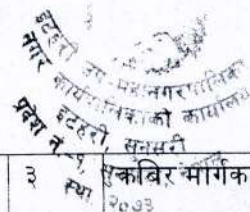 इटहरी उप-महानगरपालिका
नगर कार्यपालिकाको कार्यालय
इटहरी, सुनसरी
प्रदेश नं. १,
३
कबिर मार्गक
स्था
२०७३